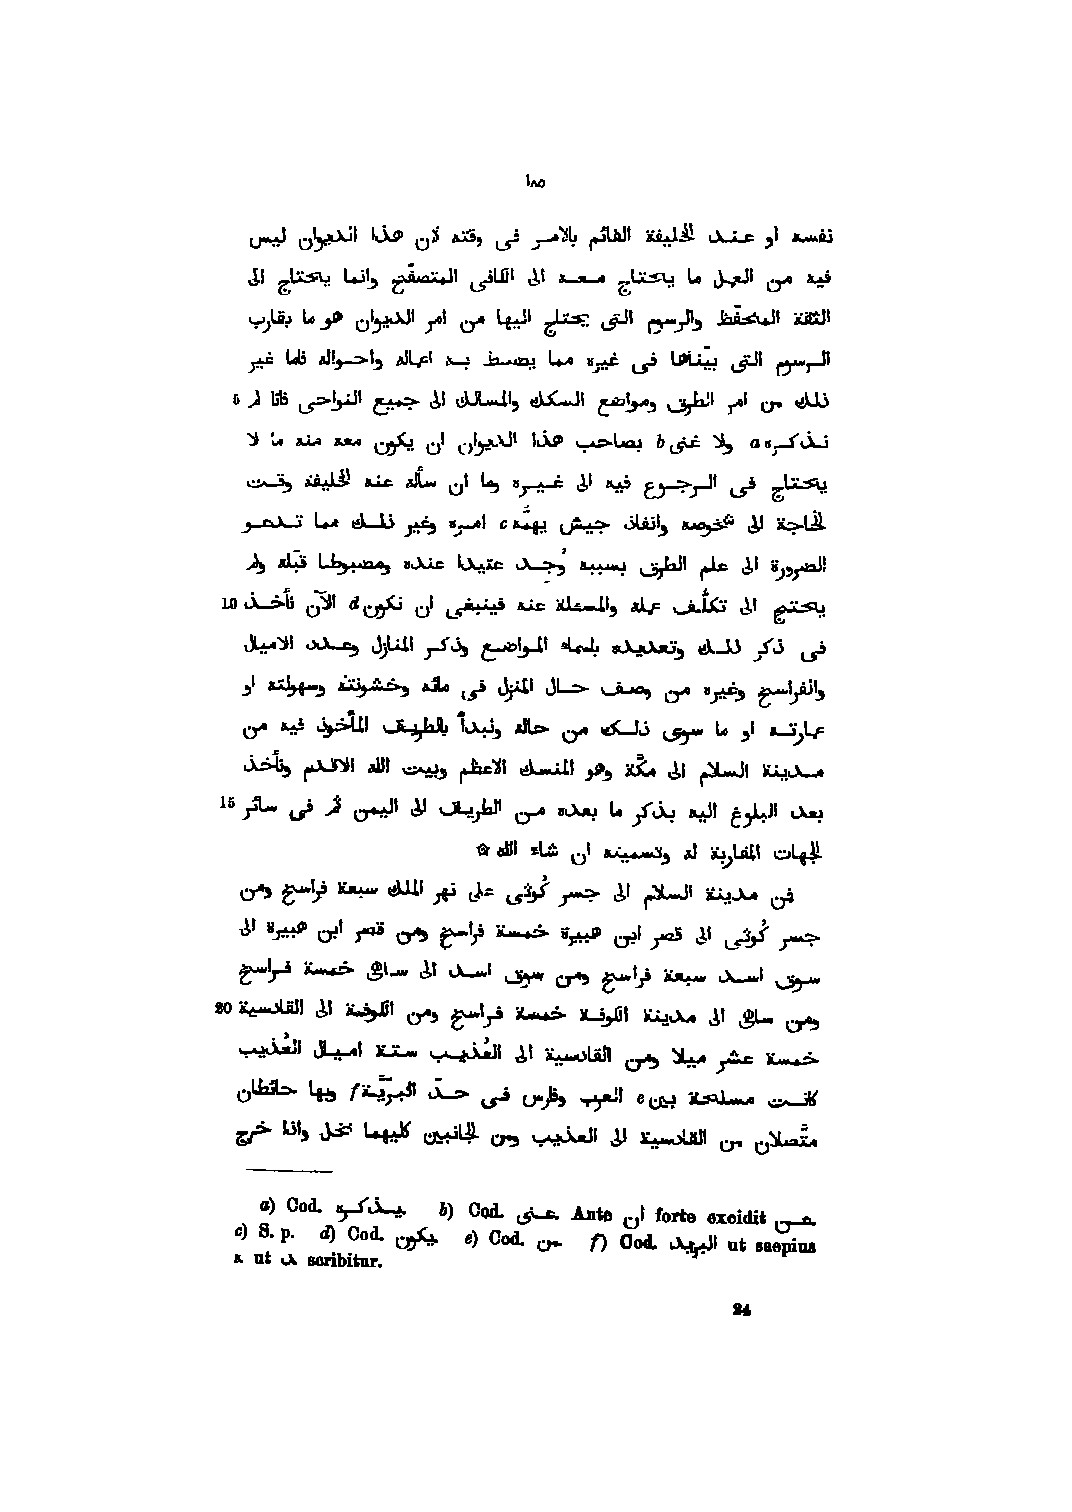 ١٨٥
نفسه او عند الخليفة القائم بالامر فى وقته لان هذا الديوان ليس
فيه من العمل ما يحتاج معه الى الكافى المتصفّح وانما يحتاج الى
الثقة المتحفّظ والرسوم التى يحتاج اليها من امر الديوان هو ما يقارب
الرسوم التى بيّنّاها فى غيره مما يضبط به اعماله واحواله فاما غير
ذلك من امر الطرق ومواضع السكك والمسالك الى جميع النواحى فانا لم 5
نذكره a ولا غنى b بصاحب هذا الديوان ان يكون معه منه ما لا
يحتاج فى الرجوع فيه الى غيره وما ان سأله عنه الخليفة وقت
الحاجة الى شخوصه وانفاذ جيش يهمّه c امره وغير ذلك مما تدعو
الضرورة الى علم الطرق بسببه وُجد عتيدا عنده ومضبوطا قبَله ولم
يحتج الى تكلُّف عمله والمسئلة عنه فينبغى ان نكون d الآن نأخذ 10
فى ذكر ذلك وتعديده باسماء المواضع وذكر المنازل وعدد الاميال
والفراسخ وغيره من وصف حال المنزل فى مائه وخشونته وسهولته او
عمارته او ما سوى ذلك من حاله ونبدأ بالطريق المأخوذ فيه من
مدينة السلام الى مكّة وهو المنسك الاعظم وبيت الله الاقدم ونأخذ
بعد البلوغ اليه بذكر ما بعده من الطريق الى اليمن ثم فى سائر 15
الجهات المقاربة له وتسميته ان شاء الله ۞
فمن مدينة السلام الى جسر كُوثى على نهر الملك سبعة فراسخ ومن
جسر كُوثى الى قصر ابن هبيرة خمسة فراسخ ومن قصر ابن هبيرة الى
سوق اسد سبعة فراسخ ومن سوق اسد الى ساهى خمسة فراسخ
ومن ساهى الى مدينة الكوفة خمسة فراسخ ومن الكوفة الى القادسية 20
خمسة عشر ميلا ومن القادسية الى العُذيب ستة اميال العُذيب
كانت مسلحة بين e العرب وفارس فى حدّ البرّيّة f وبها حائطان
متّصلان من القادسية الى العذيب ومن الجانبين كليهما نخل واذا خرج
a) Cod. يذكره b) Cod. عنى Ante ان forte excidit عن
c) S. p. d) Cod. يكون e) Cod. من f) Cod. البريد ut saepius
ة ut د scribitur.
24